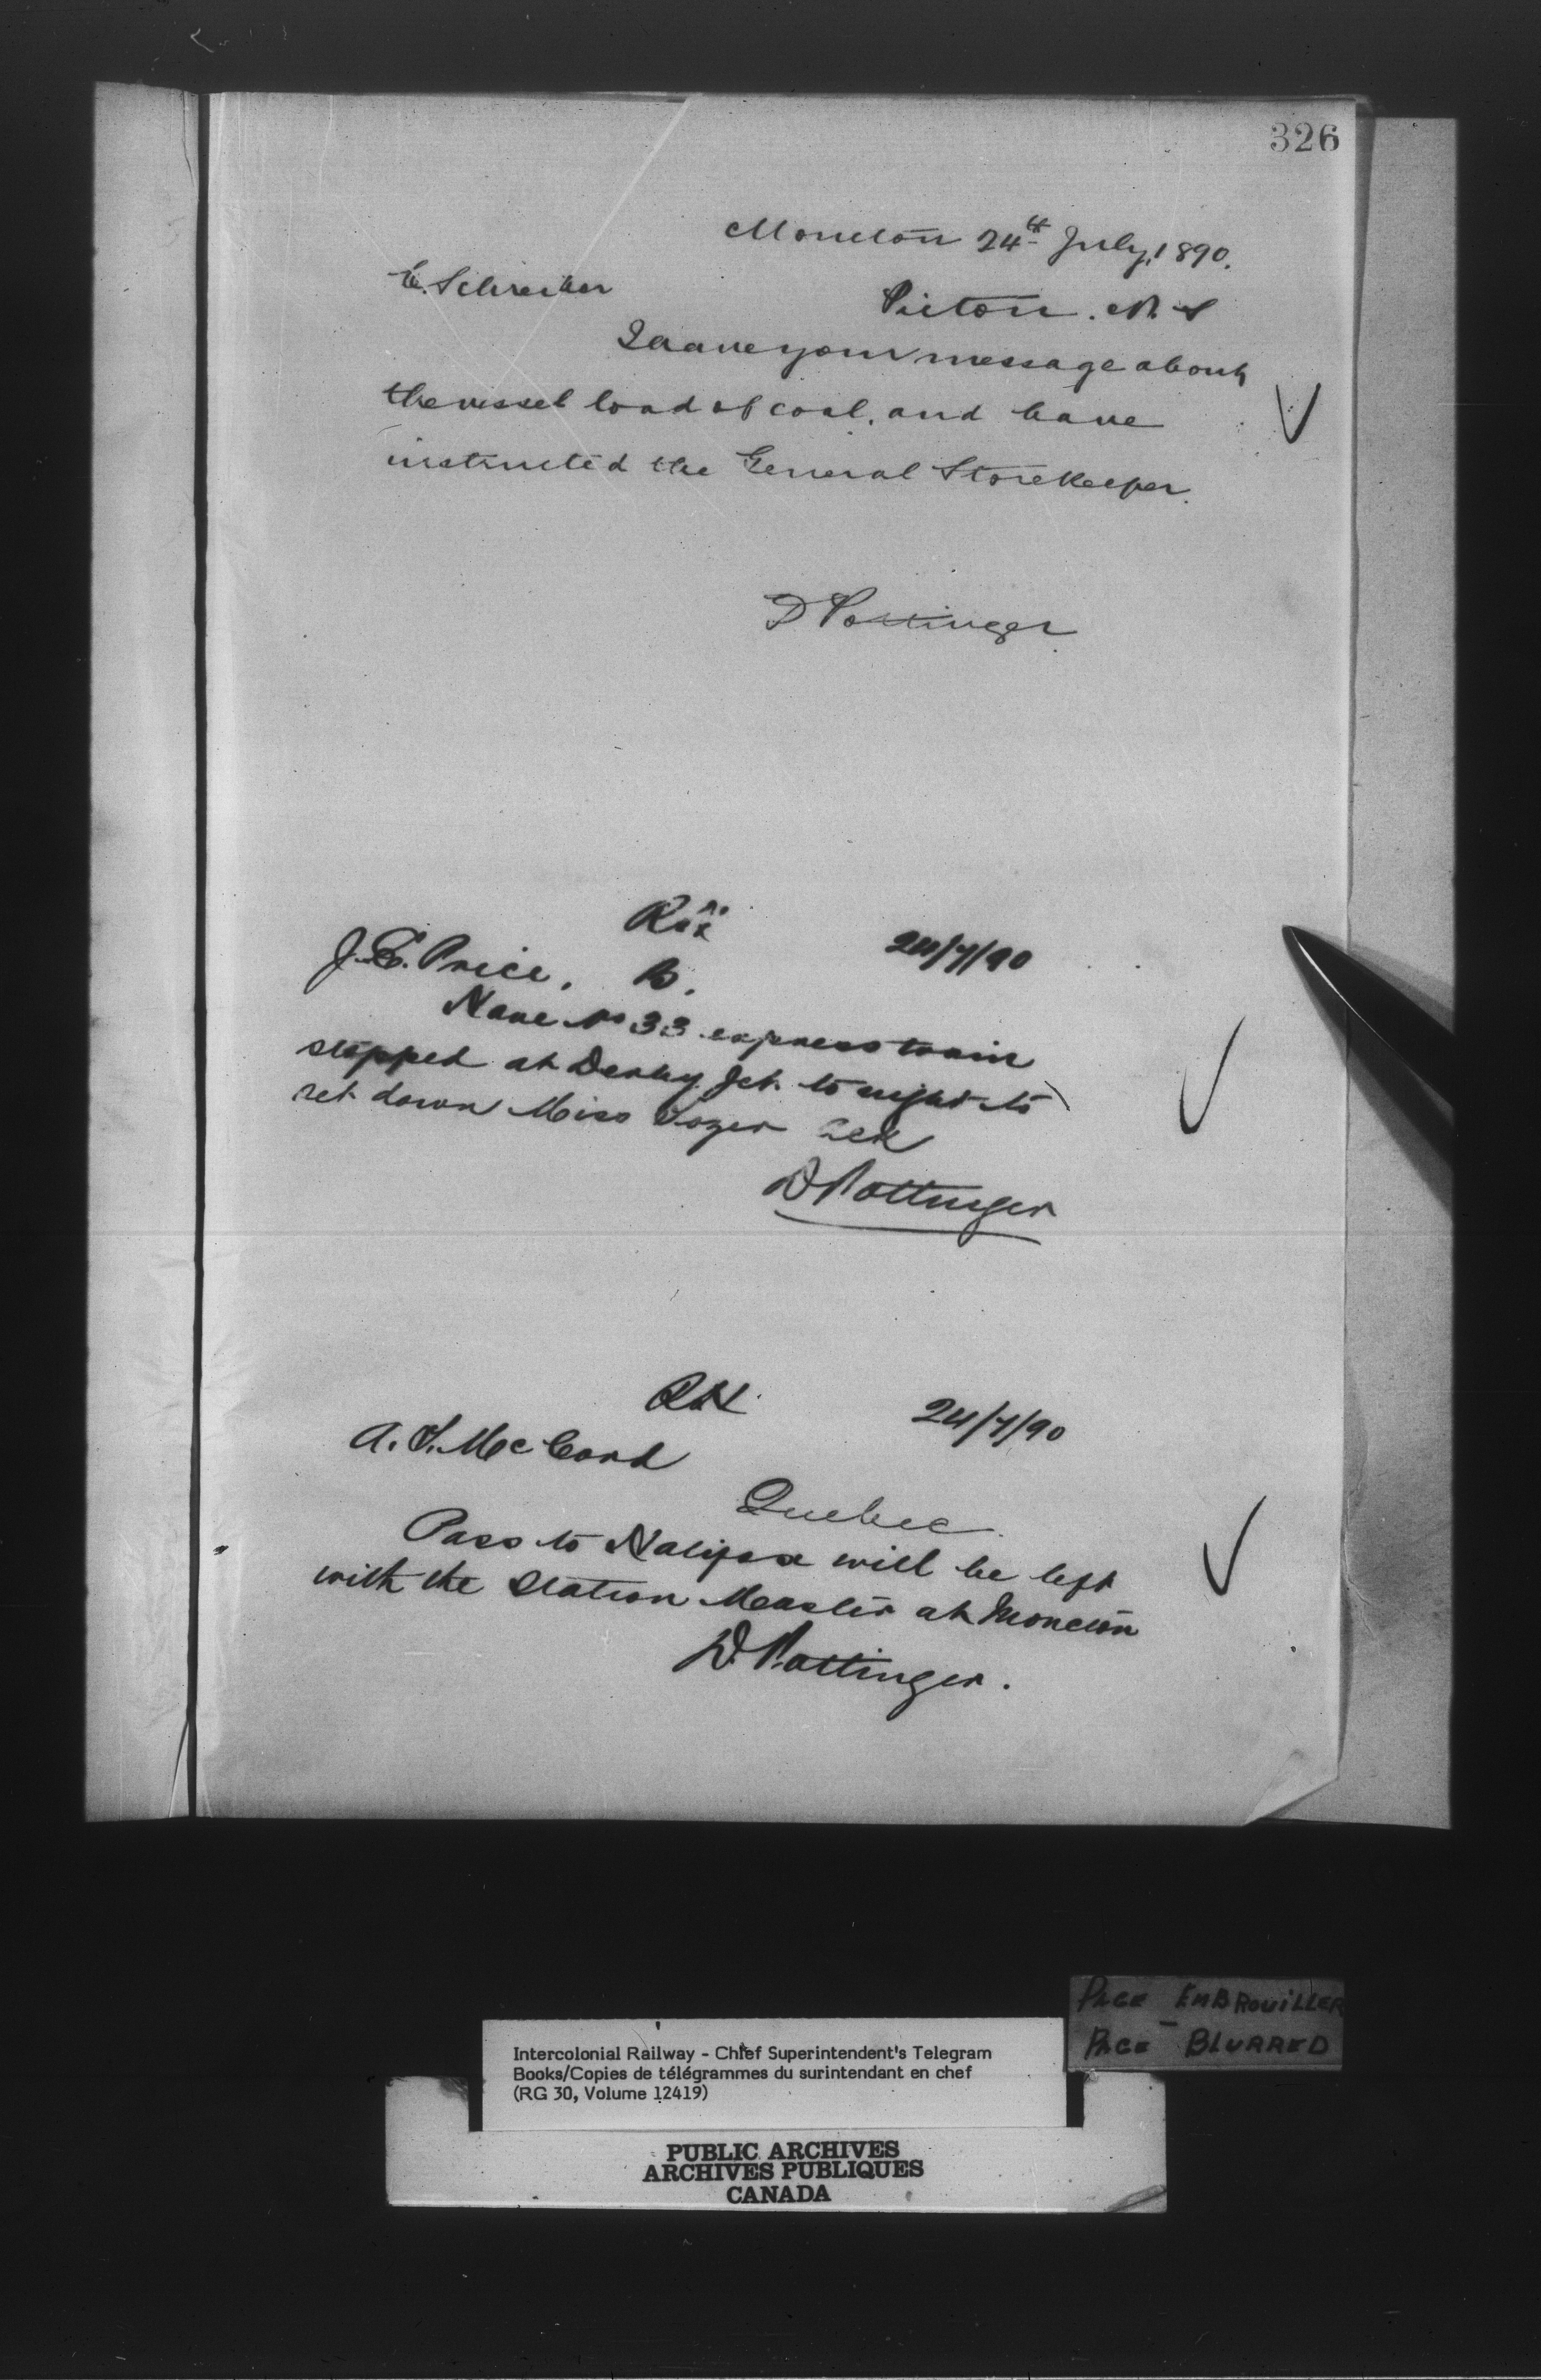 326
Moncton 24th July, 1890.
C. Schreiber
Pictou. N. S
I have your message about
the vessel load of coal, and have
instructed the General Storekeeper.
D Pottinger
24/7/90
J. E. Price, B.
Have No 33 express train
stopped at Derby Jct. to night to
set down Miss Tozer Ack
D Pottinger
24/7/90
A. S. McCord
Quebec
Pass to Halifax will be left
with the Station Master at Moncton
D. Pottinger.
PAGE EMBROUILLER
PAGE BLURRED
Intercolonial Railway - Chief Superintendent's Telegram
Books/Copies de télégrammes du surintendant en chef
(RG 30, Volume 12419)
PUBLIC ARCHIVES
ARCHIVES PUBLIQUES
CANADA